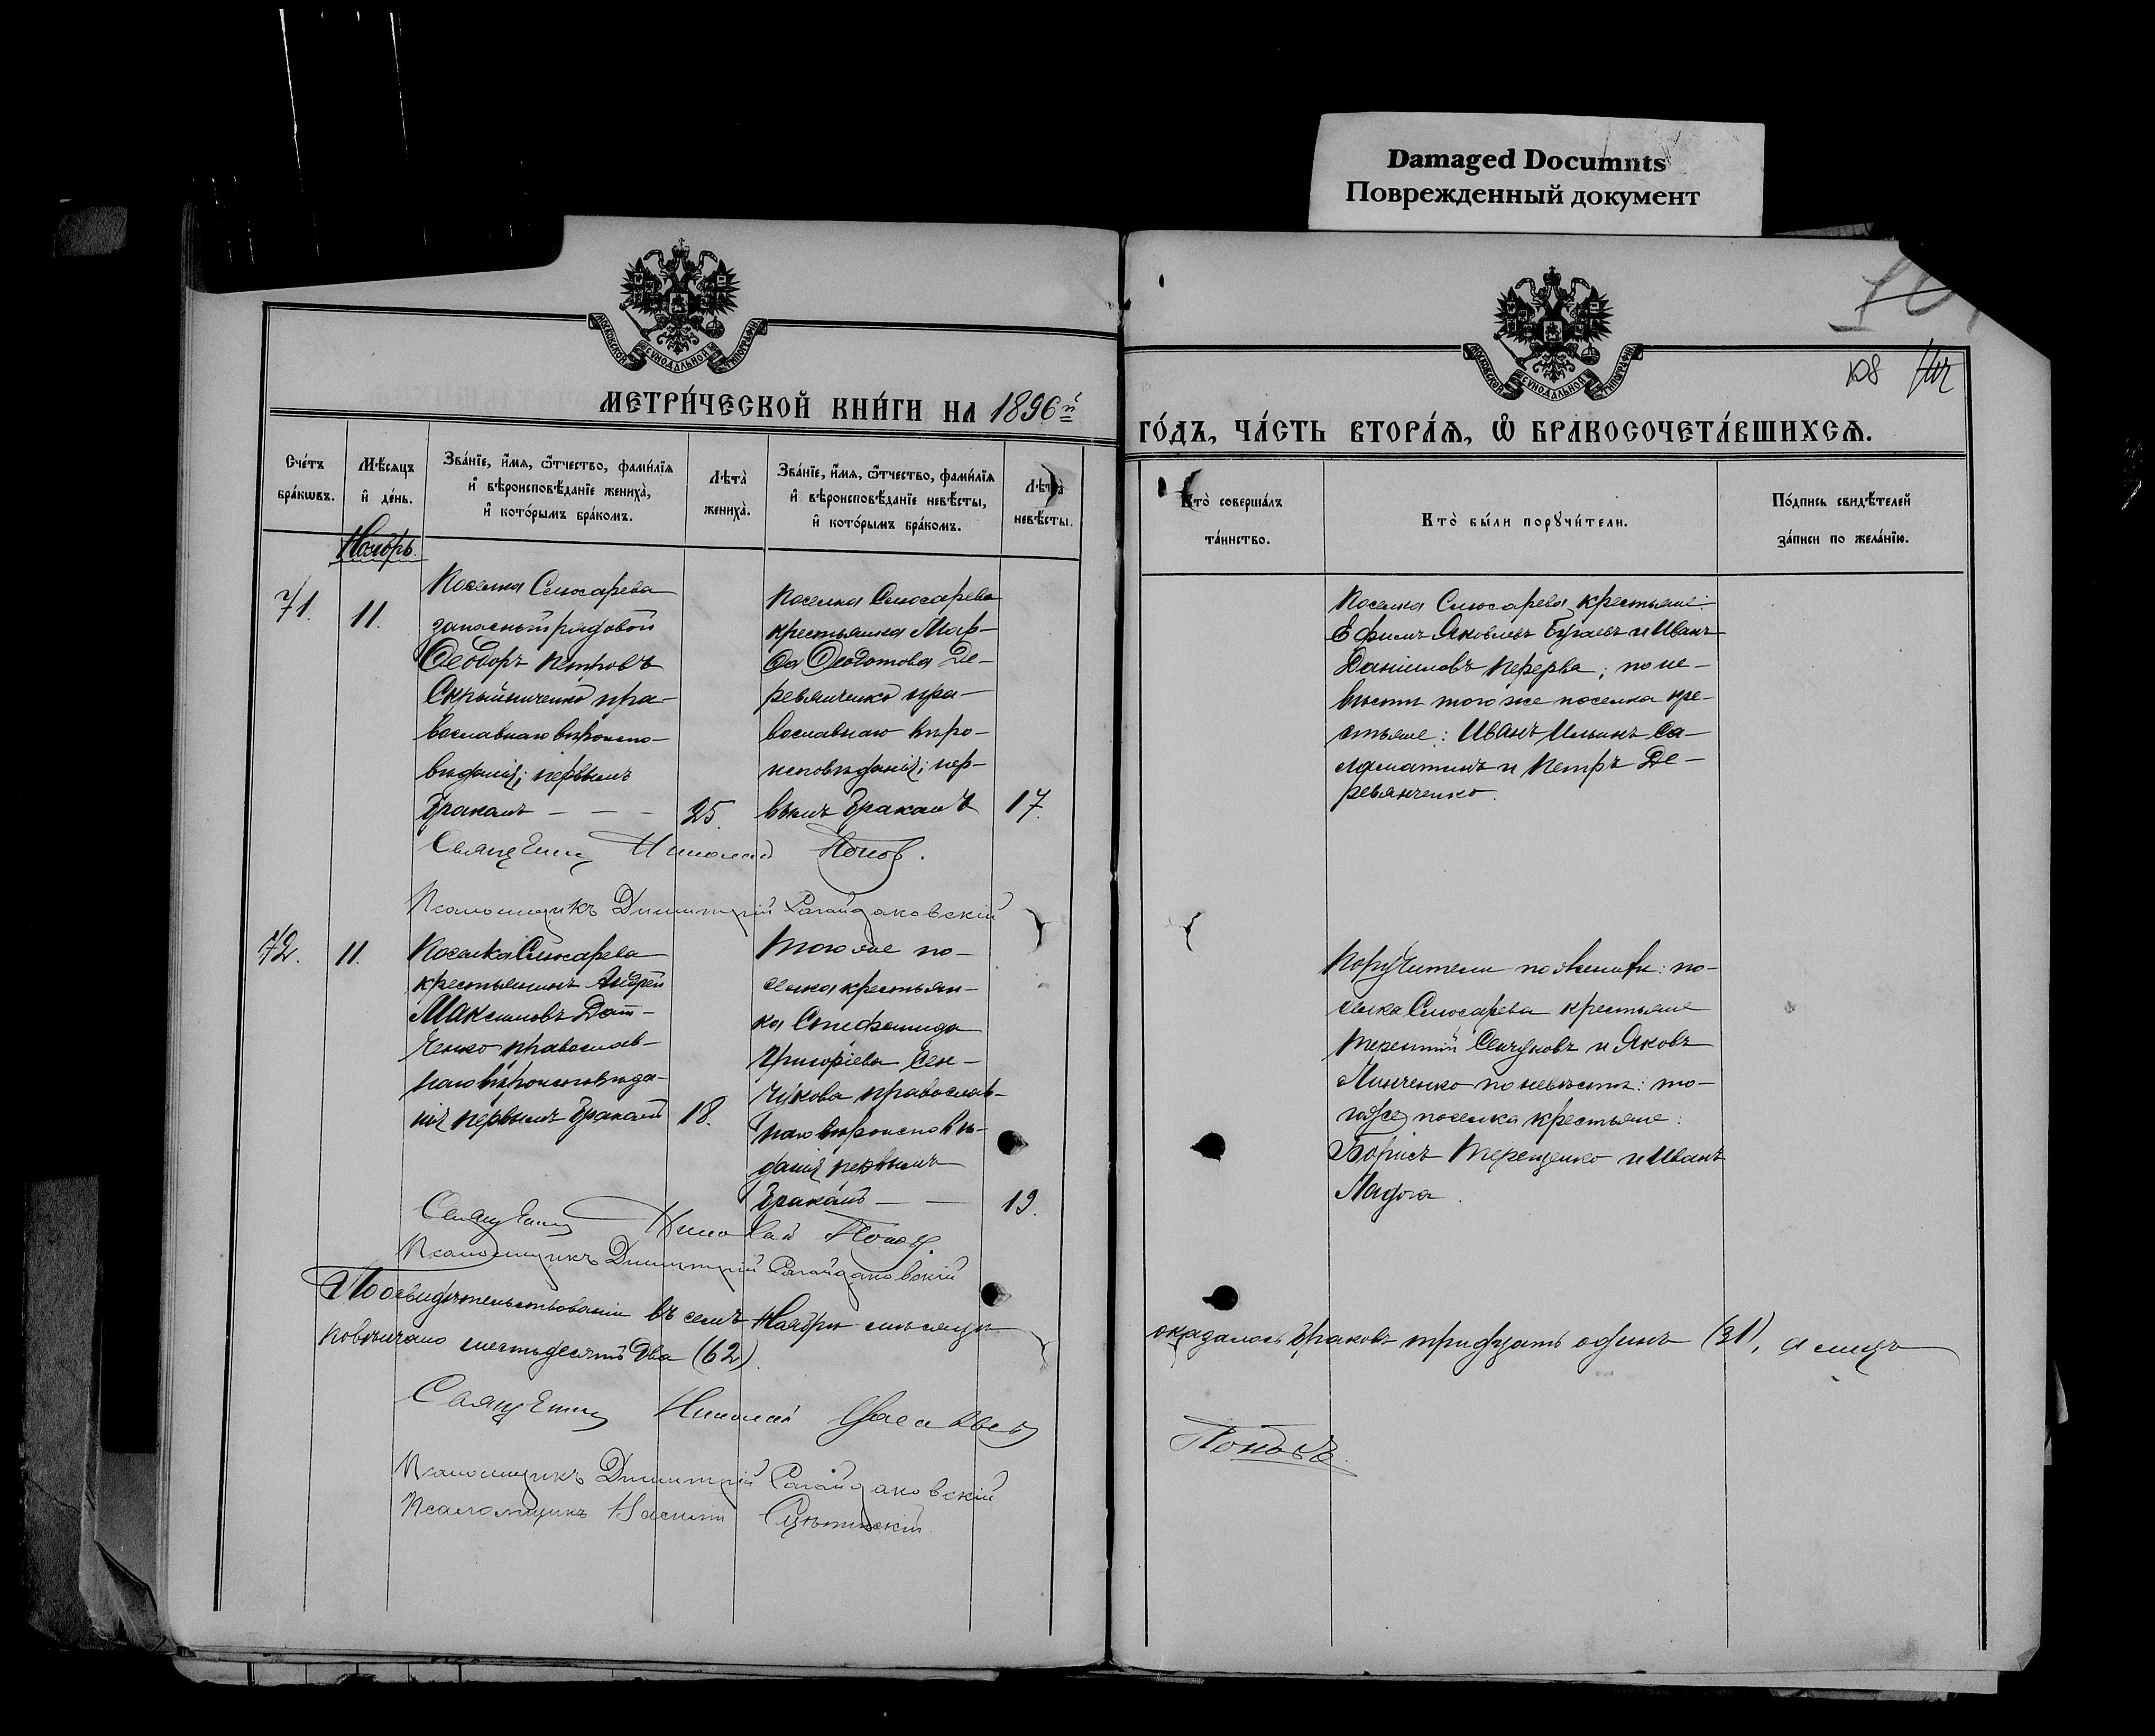 Damaged Documnts
Поврежденный документ
МОСКОВСКОЙ СУНОДАЛЬНОЙ ТИПОГРАФІИ
МОСКОВСКОЙ СУНОДАЛЬНОЙ ТИПОГРАФІИ
108
МЕТРИ́ЧЕСКОЙ КНИ́ГИ НА 1896й
ГО́ДЪ, ЧА́СТЬ ВТОРА́Я, Ѿ БРАКОСОЧЕТА́ВШИХСЯ.
Сче́тъ бра́кωвъ.
Мѣ́сяцъ и҆ де́нь.
Зва́нїе, и҆́мя, ѻ҆́тчество, фами́лїя
и҆ вѣроисповѣ́данїе жениха̀,
и҆ кото́рымъ бра́комъ.
Лѣта̀ жениха̀.
Зва́нїе, и҆́мя, ѻ҆́тчество, фами́лїя
и҆ вѣроисповѣ́данїе невѣ́сты,
и҆ кото́рымъ бра́комъ.
Лѣта̀ невѣ́сты.
Кто̀ соверша́лъ
та́инство.
Кто̀ бы́ли порꙋчи́тели.
По́дпись свидѣ́телей
за́писи по жела́нїю.
Ноябрь.
71.
11.
Поселка Слюсарева
запасный рядовой
Ѳеодоръ Петровъ
Скрыйниченко пра-
вославнаго вѣроиспо-
вѣданія; первымъ
бракомъ — — —
25.
Поселка Слюсарева
крестьянка Мар-
ѳа Ѳеодотова Де-
ревянченко пра-
вославнаго вѣро-
исповѣданія; пер-
вымъ бракомъ
17.
Поселка Слюсарева крестьяне:
Ефимъ Яковлевъ Бугаевъ и Иванъ
Даніиловъ Перерва; по не-
вѣстѣ того же поселка кре-
стьяне: Иванъ Ильинъ Са-
ламатинъ и Петръ Де-
ревянченко.
Священникъ Николай Попов.
Псаломщикъ Димитрій
72.
11.
Поселка Слюсарева
крестьянинъ Андрей
Максимовъ Дат-
ченко православ-
наго вѣроисповѣда-
нія первымъ бракомъ
18.
Того же по-
селка крестьян-
ка Стефанида
Григоріева Сен-
чукова православ-
наго вѣроисповѣ-
данія первымъ
бракомъ — —
19.
Поручители по женихѣ: по-
селка Слюсарева крестьяне
Терентій Сенчуковъ и Яковъ
Линченко по невѣстѣ: то-
гоже поселка крестьяне:
Борисъ Терещенко и Иванъ
Ладога.
Священникъ Николай Попов.
Псаломщикъ Димитрій
По освидѣтельствованіи въ семъ Ноябрѣ мѣсяцѣ
оказалось браковъ тридцать одинъ (31), а лицъ
повѣнчано шестьдесятъ два (62).
Священникъ Николай
Поповъ.
Псаломщикъ Димитрій
Псаломщикъ